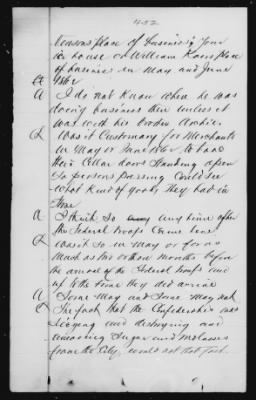 452
place of business; your
house or William Kains place
of business in May and June
1862
A I do not know when he was
doing business then unless it
was with his brother
Q Was it Customary for Merchants
in May or June 1862 to have
their Cellar doors standing open
so persons passing could see
what kind of goods they had in
A I think so any time after
the Federal troops came here
Q Was it so in May or for as
much as two or three months before
the arrival of the Federal troops and
up to the time they did arrive
A Some may and some may not
Q The fact that the Confederates was
seizing and destroying and
removing Sugar and Molasses
from the City, would not that fact